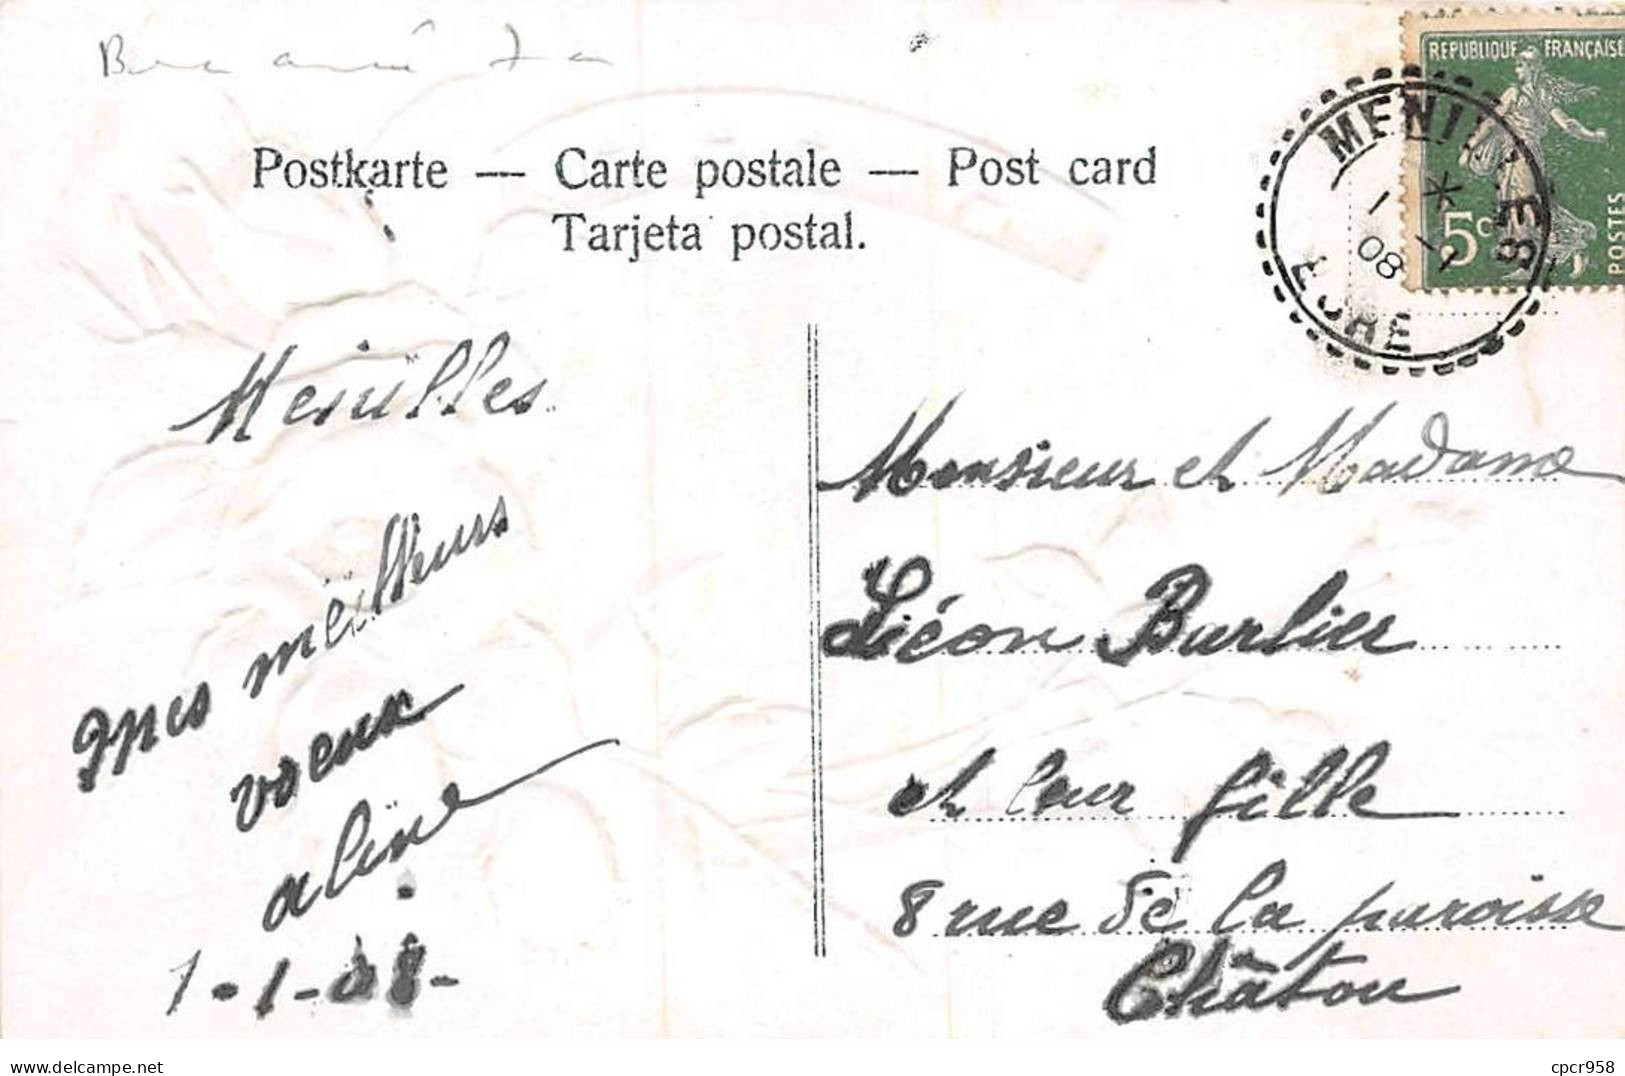 Postkarte — Carte postale — Post card
Tarjeta postal.
REPUBLIQUE FRANÇAISE
5c
POSTES
1 - 1
08
EURE
Menilles
mes meilleurs
voeux
aline
1-1-08-
Monsieur et Madame
Léon Burlier
et leur fille
8 rue de la paroisse
Châtou
delcampe.net
cpcr958